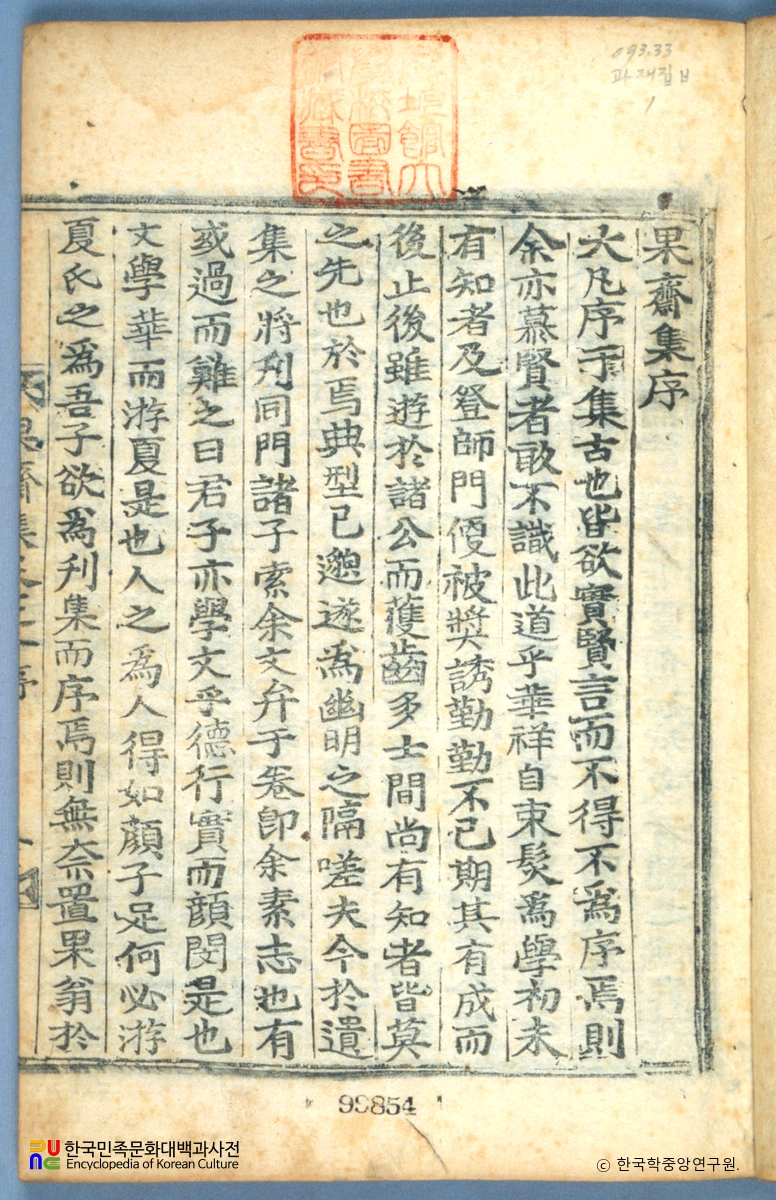 093.33
과재집 H
1
果齋集序
大凡序于集古也皆欲實賢言而不得不爲序焉則
余亦慕賢者敢不識此道乎華祥自束髮爲學初未
有知者及登師門優被獎誘勤勤不已期其有成而
後止後雖遊於諸公而獲齒多士間尚有知者皆莫
之先也於焉典型已邈遂爲幽明之隔嗟夫今於遺
集之將刋同門諸子索余文弁于卷卽余素志也有
或過而難之曰君子亦學文乎德行實而顔閔是也
文學華而游夏是也人之爲人得如顔子足何必游
夏氏之爲吾子欲爲刋集而序焉則無奈置果翁於
果齋集
序
99854
한국민족문화대백과사전
Encyclopedia of Korean Culture
© 한국학중앙연구원.